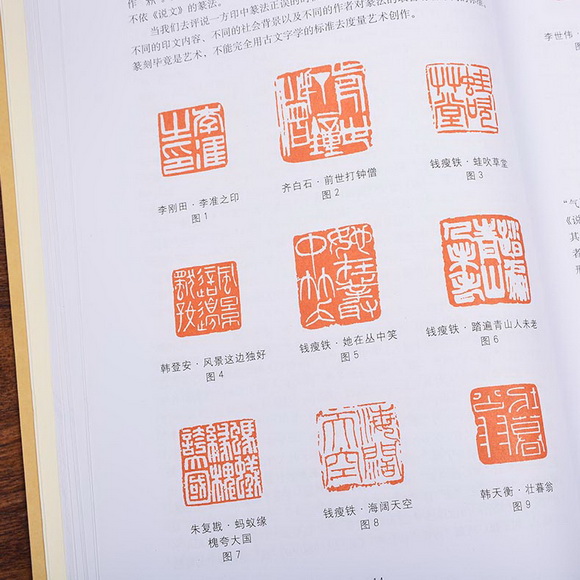 不依《说文》的篆法。
当我们去评说一方印中篆法正误的时
不同的印文内容、不同的社会背景以及不同的作者对篆法的
篆刻毕竟是艺术，不能完全用古文字学的标准去度量艺术创作。
李刚田·李准之印
图1
齐白石·前世打钟僧
图2
钱瘦铁·蛙吹草堂
图3
韩登安·风景这边独好
图4
钱瘦铁·她在丛中笑
图5
钱瘦铁·踏遍青山人未老
图6
朱复戡·蚂蚁缘
槐夸大国
图7
钱瘦铁·海阔天空
图8
韩天衡·壮暮翁
图9
李世伟·
图
“气
《说
其
者